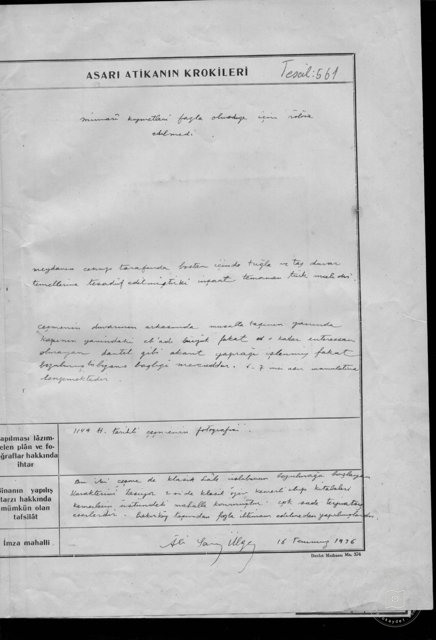 ASARI ATİKANIN KROKİLERİ
Tescil: 561
mimarî kıymetleri fazla olmadığı için rölöve
edilmedi.
meydanın cenup tarafında bostan içinde tuğla ve taş duvar
temellerine tesadüf edilmiştir ki inşaat tamamen türk
çeşmenin duvarının arkasında musalla taşının yanında
kapının yanındaki ebadı büyük fakat o kadar interessan
olmayan dantel gibi akant yaprağı işlenmiş fakat
bozulmuş başlığı mevcuddur.
benzemektedir.
apılması lâzım-
elen plân ve fo-
ğraflar hakkında
ihtar
1144 H. tarihli çeşmenin fotografisi.
inanın yapılış
tarzı hakkında
mümkün olan
tafsilât
Bu iki çeşme de klasik üslubunun bozulmağa başlayan
karakterini taşıyor. klasik kemerli olup kitabeleri
kemerlerin üstündeki mahalle konmuştur. çok sade
eserlerdir. bakırköy taşından fazla ihtimam edilmeden yapılmışlardır.
İmza mahalli
Ali Ülgen 16 Temmuz 1936
Devlet Matbaası Ma. 374